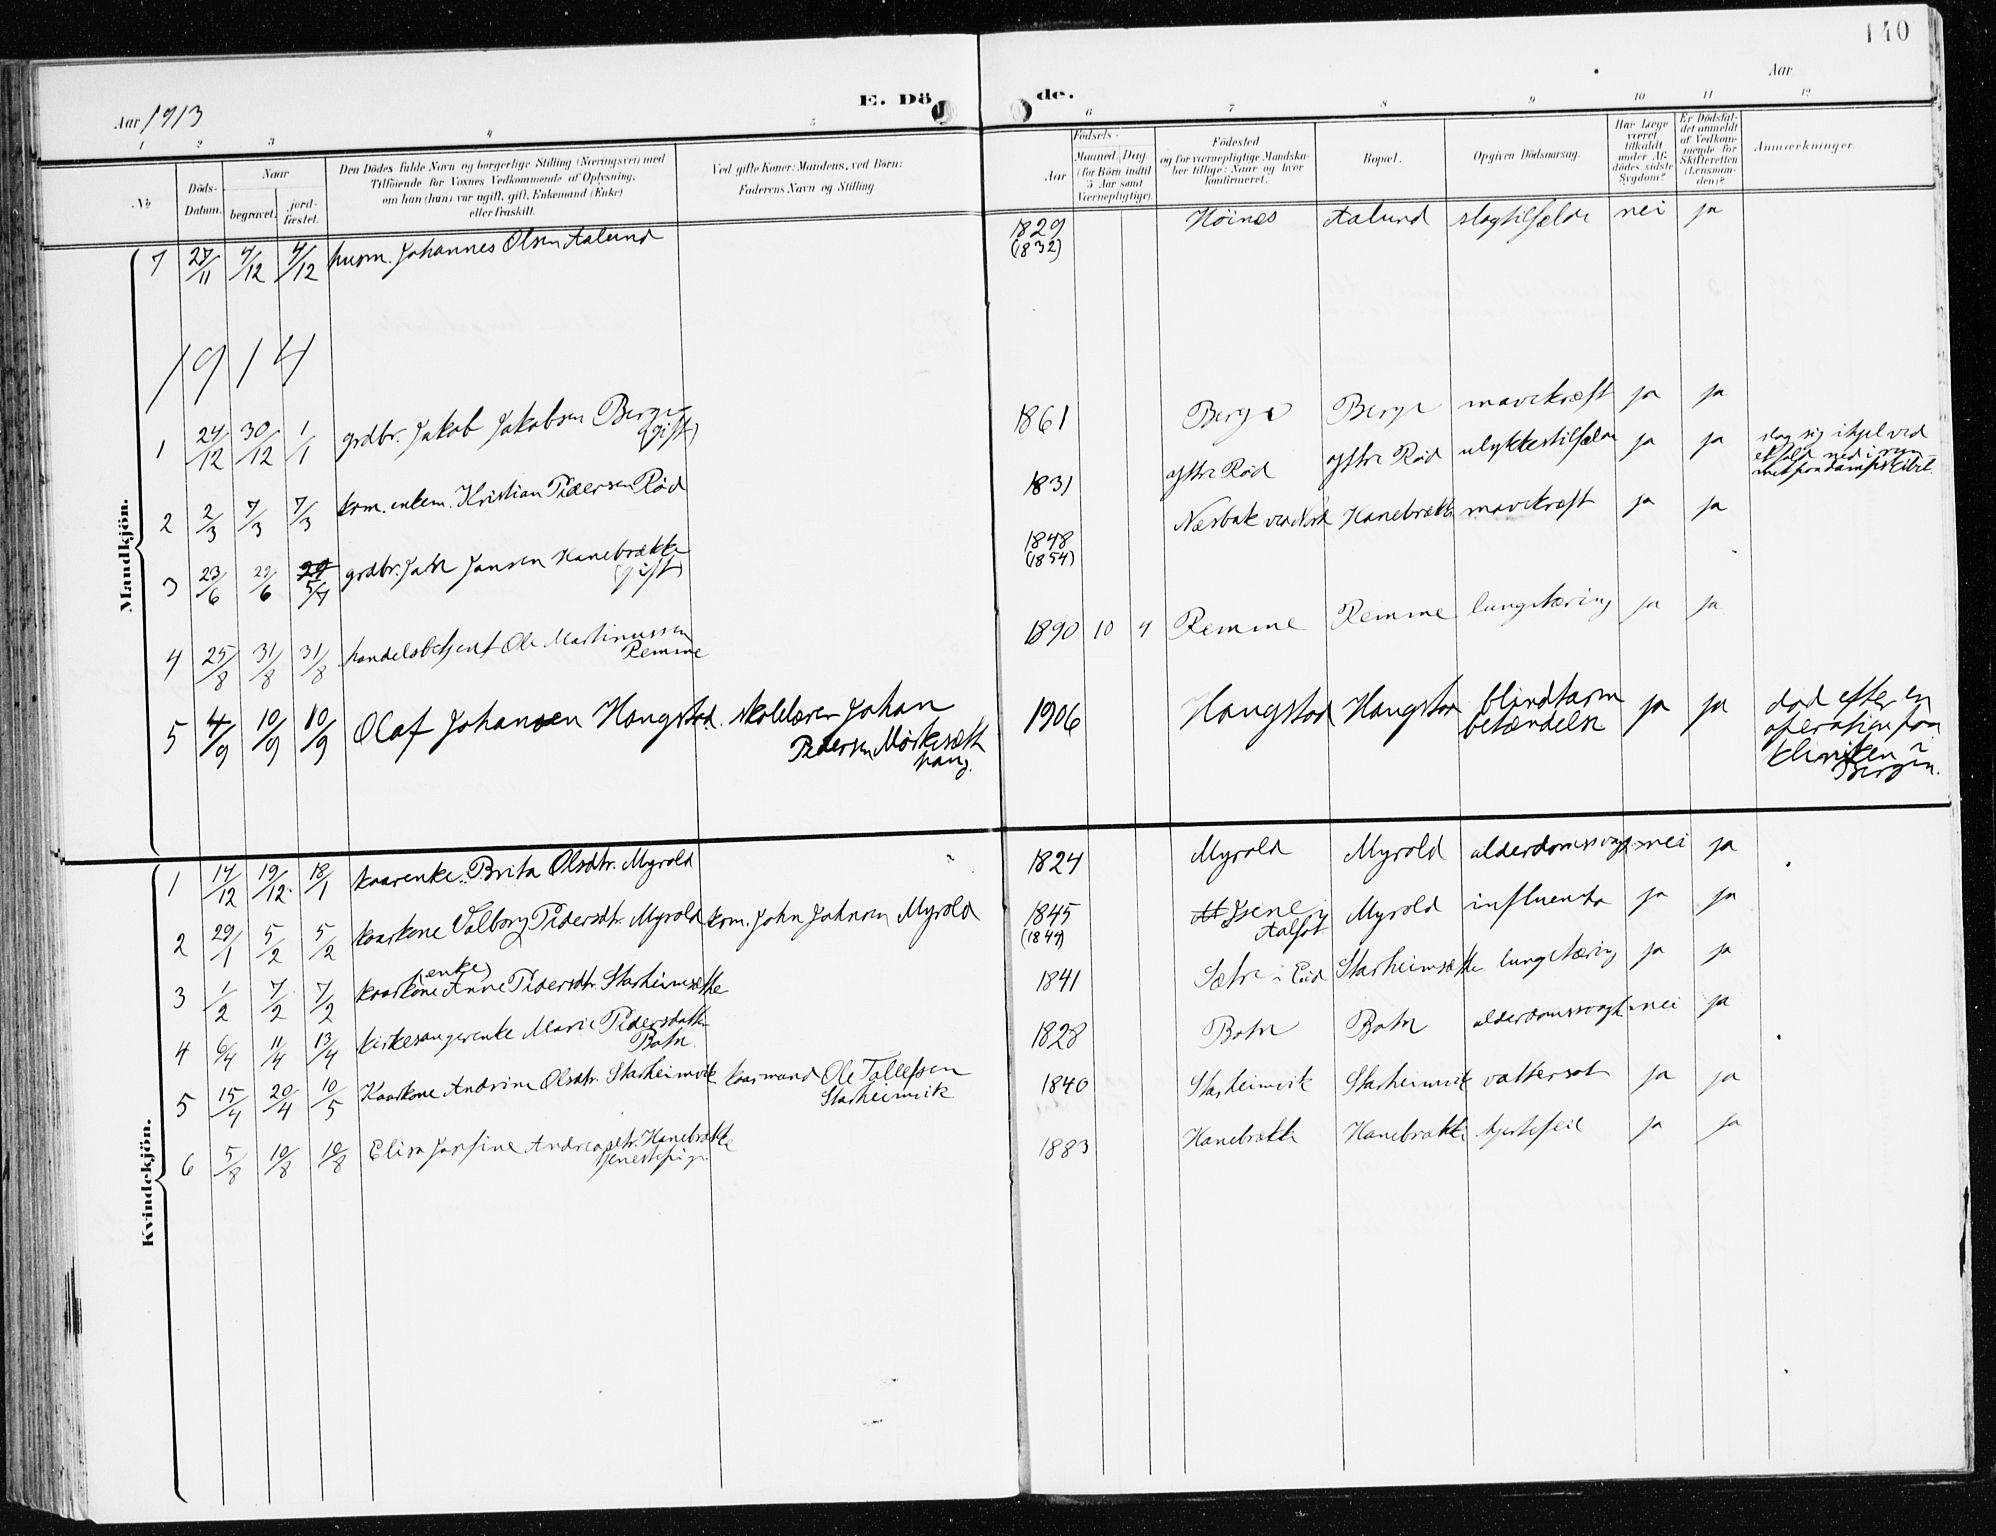 140
Aar 1913
E. Döde.
Aar
1 2 3 4 5 6 7 8 9 10 11 12
No.
Döds-Datum.
Naar
begravet.
jord-fæstet.
Den Dödes fulde Navn og borgerlige Stilling (Næringsvei) med
Tilföiende for Voxnes Vedkommende af Oplysning,
om han (hun) var ugift, gift, Enkemand (Enke)
eller fraskilt.
Ved gifte Koner: Mandens, ved Börn:
Faderens Navn og Stilling.
Födsels-
Aar
Maaned. Dag
(for Börn indtil
5 Aar samt
Værnepligtige).
Födested
og for værnepligtige Mandskaber tillige: Naar og hvor
konfirmeret.
Bopæl.
Opgiven Dödsaarsag.
Har Læge
været
tilkaldt
under Afdödes sidste
Sygdom?
Er Dödsfaldet anmeldt
af Vedkommende for
Skifteretten
(Lensmanden)?
Anmærkninger.
Mandkjön.
7 27/11 4/12 4/12 husm. Johannes Olsen Aalund 1829 (1832) Höines Aalund slagtilfælde nei ja
1914
1 24/12 30/12 1/1 grdbr. Jakob Jakobsen Berge (gift) 1861 Berge Berge mavekræft ja ja
2 2/3 7/3 7/3 kom. enkem. Kristian Pedersen Rød 1831 ystre Rød ystre Rød ulykkestilfælde ja ja slog sig ihjel ved et fald ned i rummet fra dampskibet
3 23/6 29/6 5/7 grdbr. Jansen Hanebrække (gift) 1848 (1854) Næsbak Hanebrække mavekræft ja ja
4 25/8 31/8 31/8 handelsbetjent Ole Martinussen Remme 1890 10 4 Remme Remme lungetæring ja ja
5 4/9 10/9 10/9 Olaf Johansen Haugstad. skolelærer Johan Pedersen Mørkesæth haug. 1906 Haugstad Haugstad blindtarm betændelse ja ja død efter en operation paa kliniken i Bergen.
Kvindekjön.
1 14/12 19/12 18/1 kaarenke Brita Olsdtr. Myrold 1824 Myrold Myrold alderdomssvagh. nei ja
2 29/1 5/2 5/2 kaarkone Valborg Pedersdtr. Myrold kom. John Johnsen Myrold 1845 (1844) Isene Aalfot Myrold influenza ja ja
3 1/2 7/2 7/2 kaarkone (enke) Anne Pedersdtr. Starheimsæthe 1841 Sætre i Eid Starheimsæthe lungetæring ja ja
4 6/4 11/4 13/4 kirkesangerenke Marie Pedersdatter Botn. 1828 Botn Botn alderdomssvagh. nei ja
5 15/4 20/4 10/5 Kaarkone Andrine Olsdtr. Starheimvik kaarmand Ole Tollefsen Starheimvik 1840 Starheimvik Starheimvik vattersot ja ja
6 5/8 10/8 10/8 Elisa Josefine Andreasdtr. Hanebrække tjenestepige. 1883 Hanebrække Hanebrække hjertefeil ja ja